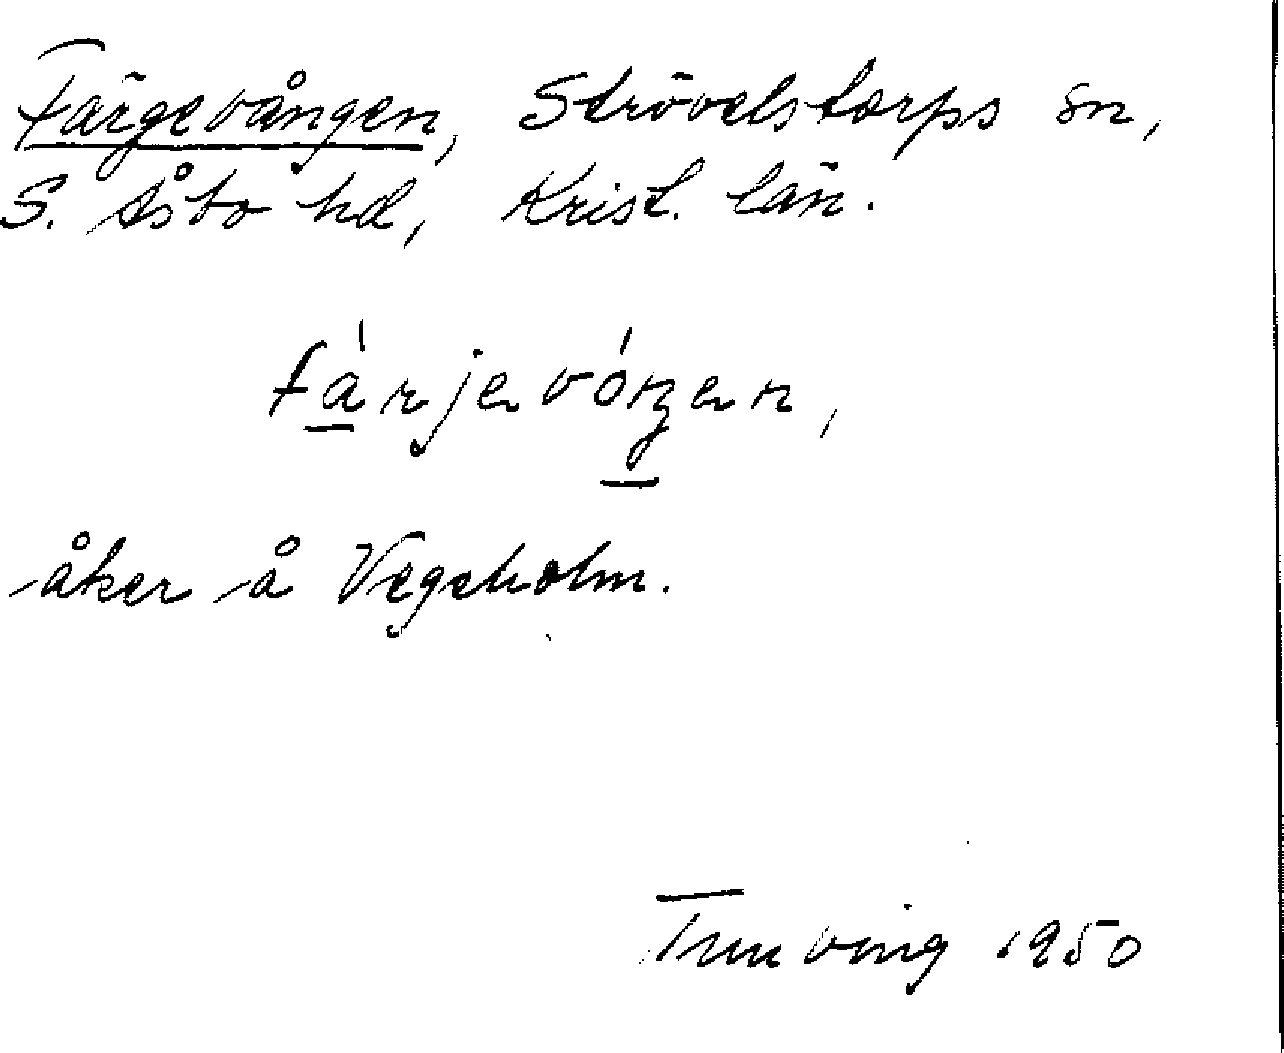 Färgevången, Strövelstorps sn,
S. Åsbo hd, Krist. län.
fàrjevóŋen,
åker å Vegeholm.
Tun ving 1950